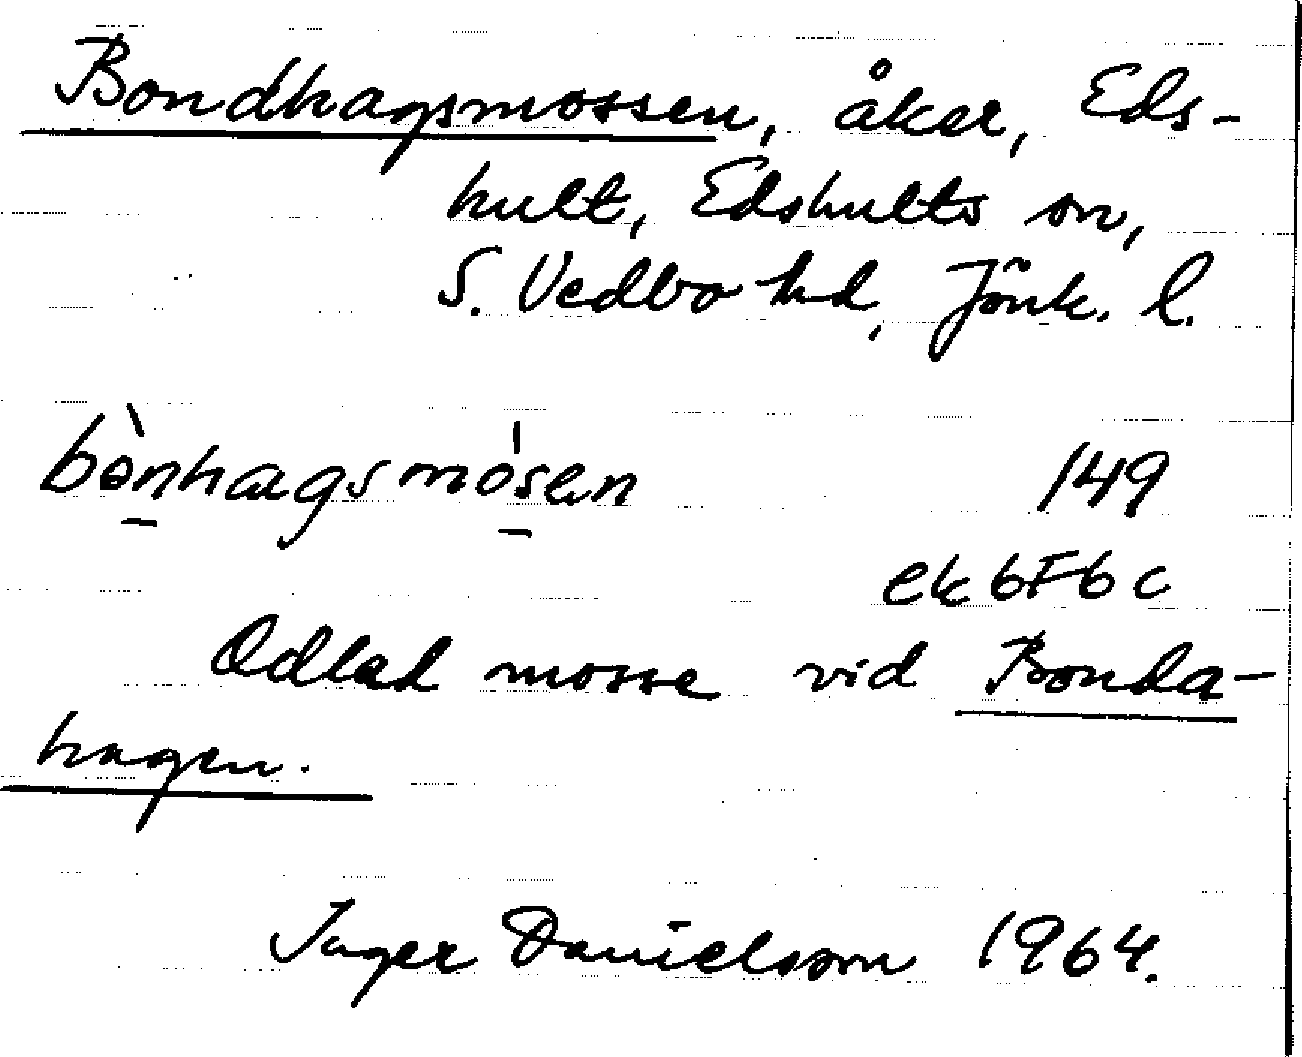 Bondhagsmossen, åker, Eds-
hult, Edshults sn,
S. Vedbo hd, Jönk. l.
bònhagsmós̠en 149
ek 6F6c
Odlad mosse vid Bonda-
hagen.
Inger Danielsson 1964.